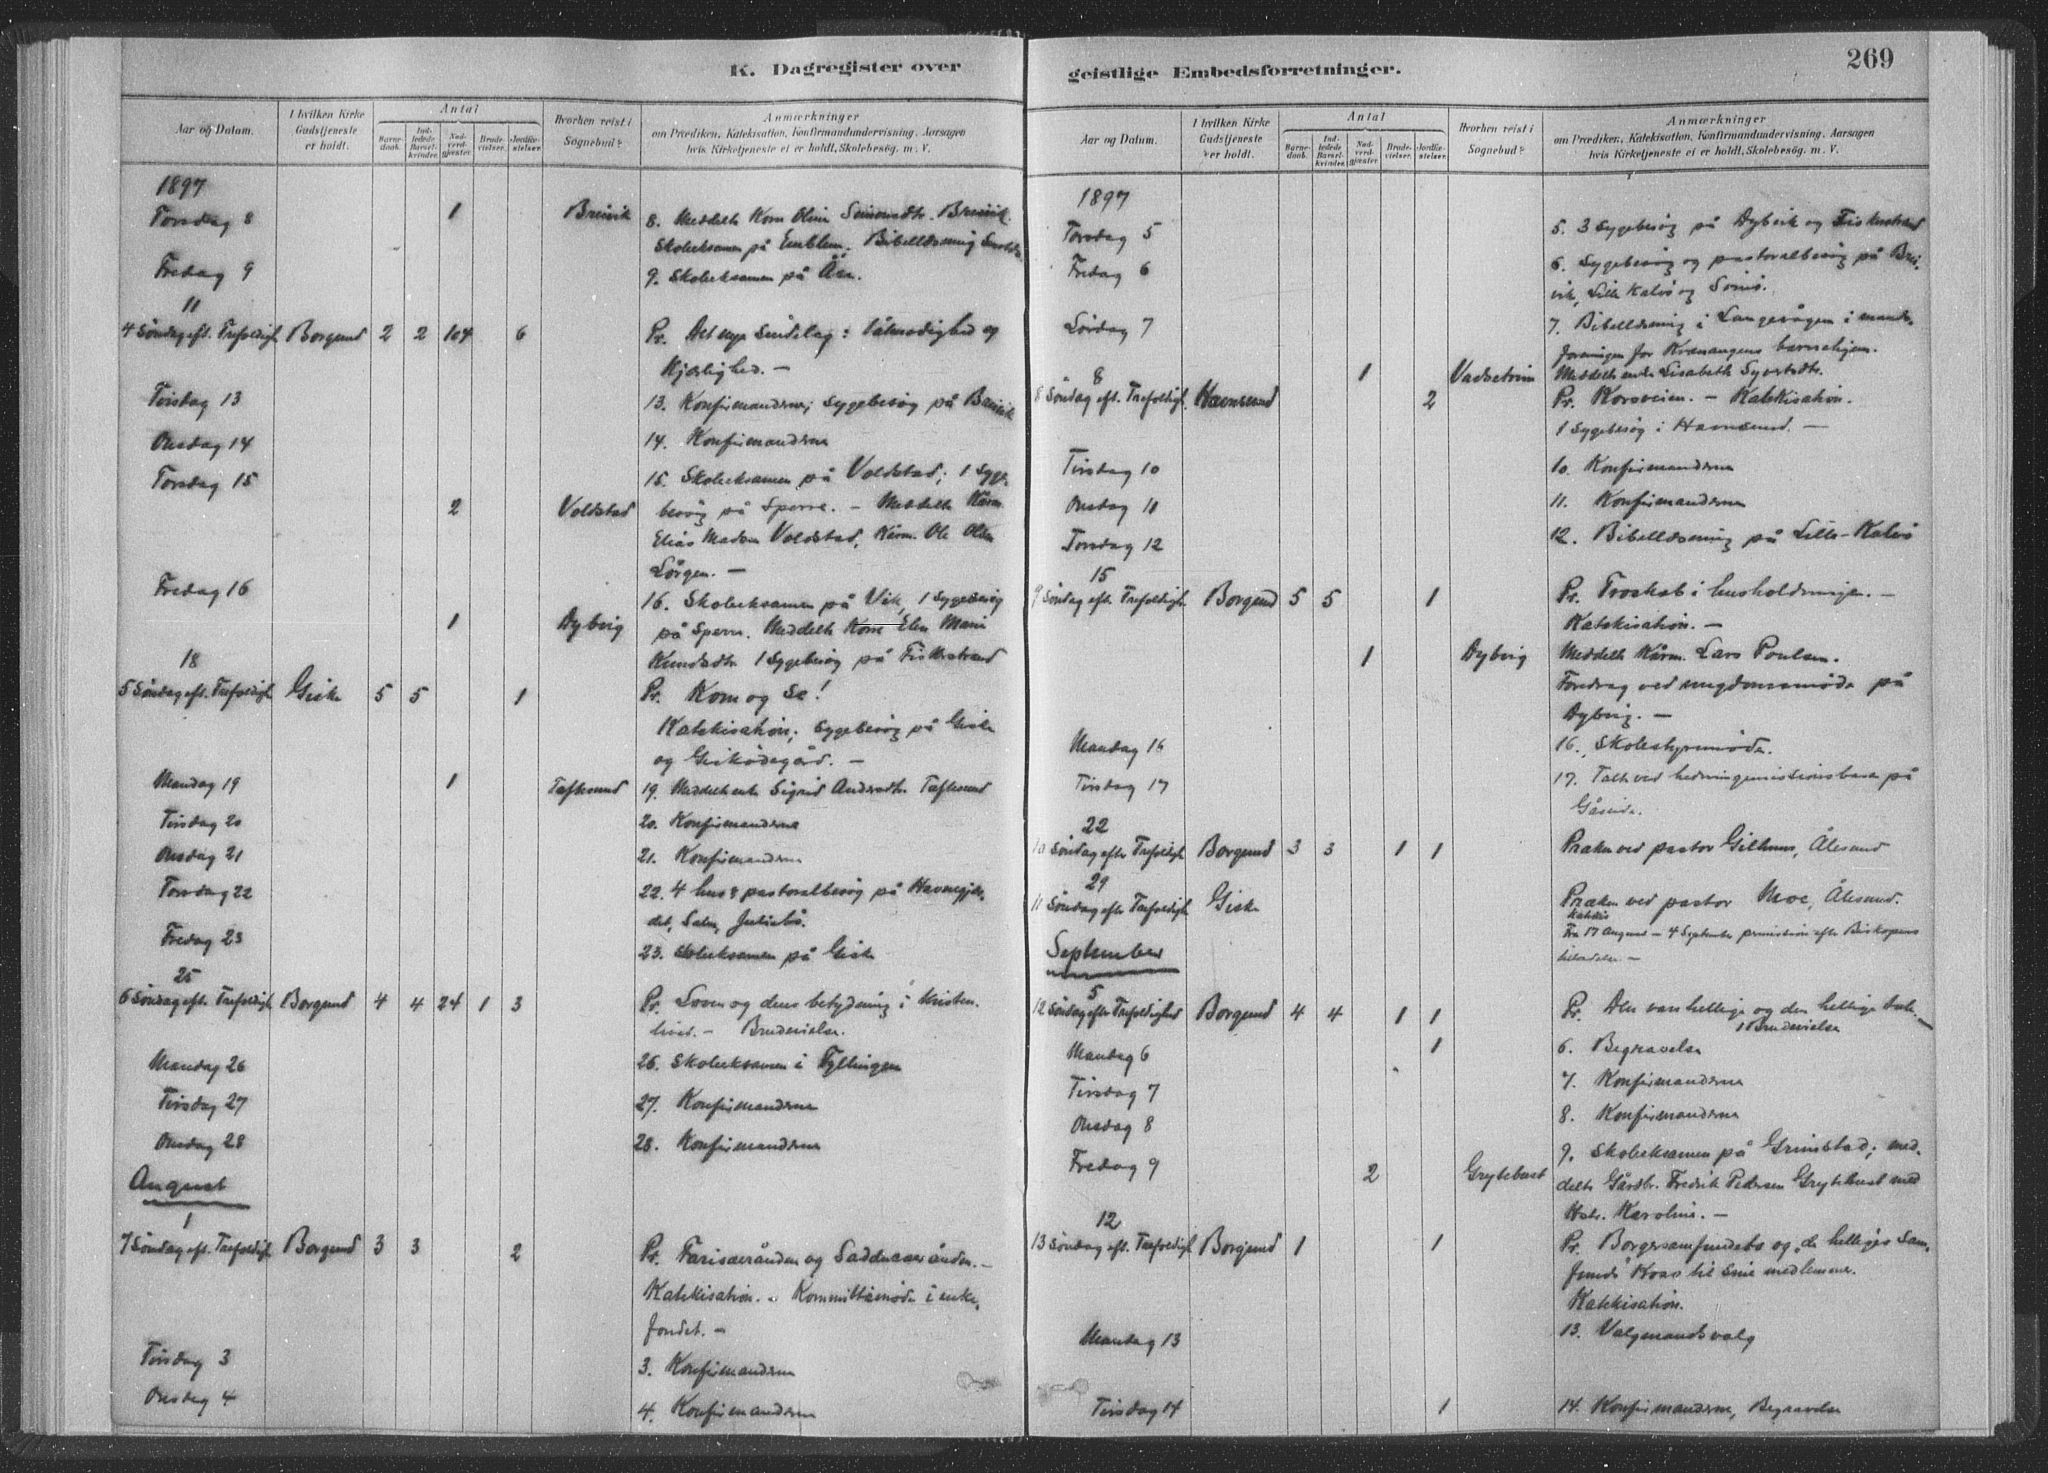 K. Dagregister over
Aar og Datum.
I hvilken Kirke Gudstjeneste er holdt.
Antal
Barnedaab.
Indledede Barselkvinder.
Nadverdgjester.
Brudevielser.
Jordfæstelser.
Hvorhen reist i Sognebud?
Anmærkninger
om Prædiken, Katekisation, Konfirmandundervisning, Aarsagen
hvis Kirketjeneste ei er holdt, Skolebesøg. m. V.
1897
Torsdag 8 1 Breivik 8. Meddelt Kone Oline Breivik.
Skoleeksamen på Emblem. Bibellæsning
Fredag 9 9. Skoleeksamen på
11
4 Søndag eft. Trefoldigh. Borgund 2 2 104 6 Pr. Det nye Sindelag: Tålmodighed og
Kjærlighed. —
Tirsdag 13 13. Konfirmanderne; sygebesøg på Breivik
Onsdag 14 14. Konfirmanderne
Torsdag 15 15. Skoleeksamen på Voldstad; 1 syge-
2 Voldstad besøg på Sperre. — Meddelt Kårm.
Elias Madsen Voldstad, Kårm. Ole Olsen
Lørgen. —
Fredag 16 16. Skoleeksamen på Vik, 1 Sygebesøg
1 Dybvig på Sperre. Meddelt Kone Elen Marie
Knudsdtr. 1 Sygebesøg på Fiskerstrand
18
5 Søndag eft. Trefoldigh. Giske 5 5 1 Pr. Kom og se!
Katekisation; sygebesøg på Giske
og Giskeødegård. —
Mandag 19 1 Taftesund 19. Meddelt enke Sigrid Andersdtr. Taftesund
Tirsdag 20 20. Konfirmanderne
Onsdag 21 21. Konfirmanderne
Torsdag 22 22. 4 hus & pastoralbesøg på Havnegjær-
det, Salen, Juliebø.
Fredag 23 23. Skoleeksamen på Giske
25
6 Søndag efter Trefoldigh. Borgund 4 4 24 1 3 Pr. Loven og dens betydning i kristen-
livet. — Brudevielse.
Mandag 26 26. Skoleeksamen i Fyllingen
Tirsdag 27 27. Konfirmanderne
Onsdag 28 28. Konfirmanderne
August
1
7 Søndag eft. Trefoldigh. Borgund 3 3 2 Pr. Farisæerånden og Sadducæerånden. —
Katekisation. — Kommittémøde i enke-
fondet. —
Tirsdag 3 3. Konfirmanderne
Onsdag 4 4. Konfirmanderne
geistlige Embedsforretninger.
269
Aar og Datum.
I hvilken Kirke Gudstjeneste er holdt.
Antal
Barnedaab.
Indledede Barselkvinder.
Nadverdgjæster.
Brudevielser.
Jordfæstelser.
Hvorhen reist i Sognebud?
Anmærkninger
om Prædiken, Katekisation, Konfirmandundervisning, Aarsagen
hvis Kirketjeneste ei er holdt, Skolebesøg. m. V.
1897
Torsdag 5 5. 3 Sygebesøg på Dybvik og Fiskerstrand
Fredag 6 6. Sygebesøg og pastoralbesøg på Brei-
vik, Lille Kalvø og
Lørdag 7 7. Bibellæsning i Langevågen i mands-
foreningen for Kvænangens barnehjem.
1 Vadsetrin Meddelt enke Lisabeth Syvertsdtr.
8
8 Søndag eft. Trefoldigh. Havnsund 2 Pr. Korsveien. — Katekisation.
1 Sygebesøg i Havnsund. —
Tirsdag 10 10. Konfirmanderne
Onsdag 11 11. Konfirmanderne
Torsdag 12 12. Bibellæsning på Lille-Kalvø
15
9 Søndag eft. Trefoldigh. Borgund 5 5 1 Pr. Troskab i husholdningen. —
Katekisation. —
1 Dybvig Meddelt Kårm. Lars Poulsen.
Foredrag ved ungdomsmøde på
Dybvig. —
Mandag 16 16. Skolestyremøde.
Tirsdag 17 17. Talt ved hedningemissionsbasar på
Gåseide.
22
10 Søndag efter Trefoldigh. Borgund 3 3 1 1 Præken ved pastor Gilhuus, Ålesund
29
11 Søndag efter Trefoldigh. Giske Præken ved pastor Moe, Ålesund.
Katekis
Fra 17 August — 4 September permission efter Biskopens
tilladelse —
September
5
12 Søndag efter Trefoldighed Borgund 4 4 1 1 Pr. Den vanhellige og den hellige tale. —
1 Brudevielse
Mandag 6 1 6. Begravelse
Tirsdag 7 7. Konfirmanderne
Onsdag 8 8. Konfirmanderne
Fredag 9 9. Skoleeksamen på Grimstad; med-
2 Grytebust delt Gårdbr. Fredrik Pedersen Grytebust med
Hstr. Karoline. —
12
13 Søndag eft. Trefoldigh. Borgund 1 1 Pr. Borgersamfundets og „de helliges Sam-
funds" Krav til sine medlemmer.
Katekisation.
Mandag 13 13. Valgmandsvalg
Tirsdag 14 1 14. Konfirmanderne, Begravelse